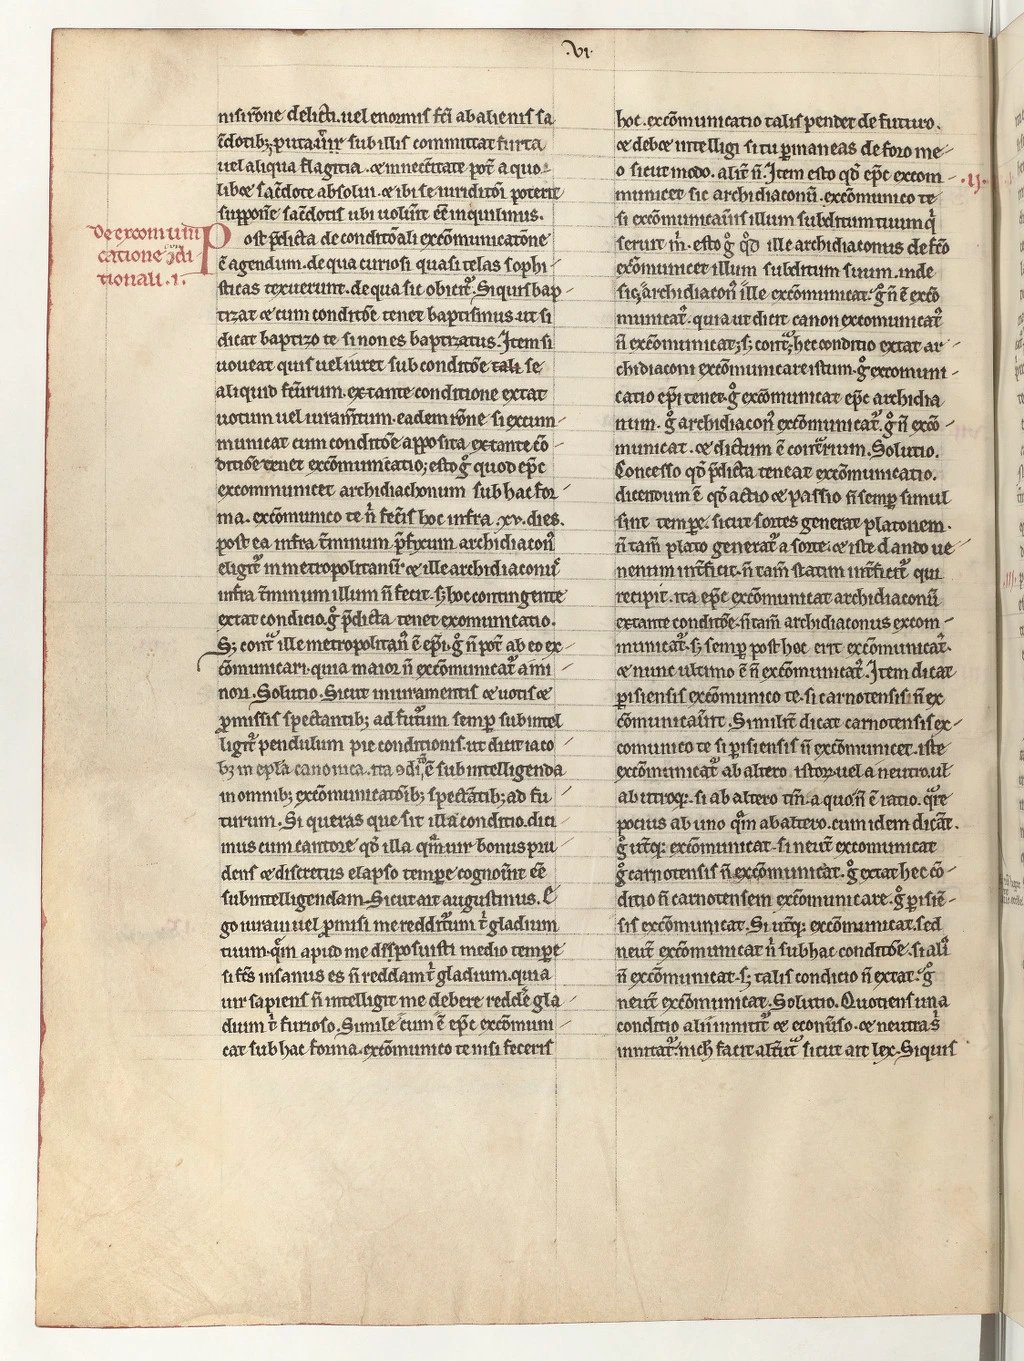 .vi.
nisi rōne delicti. uel enormis fc̄i ab alienis sa
c̄dotib; putat̉ur sub illis committat furta
uel aliqua flagitia. ⁊ in nec̄itate pōt a quo
lib⁊ sac̄dote absolui. ⁊ ibi se iuriditōi poterit
suppon̄e sac̄dotis ubi uolūit ēē inquilinus.
De excommuni
catione ↄdi
tionali .i.
Post p̄dicta de conditōali excōmunicatōne
ē agendum. de qua curiosi quasi telas sophi
sticas texuerunt. de qua sic obicit̉. Si quis bap
tizat ⁊ cum conditōe tenet baptismus. ut si
dicat baptizo te si non es baptizatus. Item si
uoueat quis uel iuret sub conditōe tali se
aliquid fc̄urum. extante conditione extat
uotum uel iuram̄tum. eadem rōne si excom
municat cum conditōe apposita extante cō
ditiōe tenet excōmunicatio; esto g̊ quod ep̄c
excommunicet archidiachonum sub hac for
ma. excōmunico te n̄ fec̄is hoc infra .xv. dies.
post ea infra t̄minum p̄fixum archidiacon̄
eligit̉ in metropolitanū ⁊ ille archidiaconꝰ
infra t̄minum illum n̄ fecit. s; hoc contingente
extat condicio. g̊ p̄dicta tenet exomunicatio.
S; cont̉ ille metropolitan̄ ē ep̄i. g̊ n̄ pōt ab eo ex
cōmunicari. quia maior n̄ excōmunicat̉ a mi
nori. Solutio. Sicut in iuramentis ⁊ uotis ⁊
ꝓmissis spectantib; ad fut̉um semp̱ subintel
ligit̉ pendulum pie conditionis. ut dicit iaco
b; in ep̄la canonica. ita ↄditō ē subintelligenda
in omnib; excōmunicatōib; spectātib; ad fu
turum. Si queras que sit illa conditio. dici
mus cum cantore qō illa qm̄ uir bonus pru
dens ⁊ discretus elapso tempe cognou̇it ēē
subintelligendam. Sicut ait augustinus. E
go iuraui uel ꝓmisi me reddit̉um t̄ gladium
tuum. qm̄ apud me disposuisti medio tempe
si fc̄s insanus es n̄ reddam t̄ gladium. quia
uir sapiens n̄ intelligit me debere redd̄e gla
dium t̄ furioso. Simile cum ē ep̄c excōmuni
cat sub hac forma. excōmunico te nisi feceris
hoc. excōmunicatio talis pendet de futuro.
⁊ deb⁊ intelligi si tu ꝑmaneas de foro me
o sicut modo. alit̄ n̄. Item esto qō ep̄c excom
.ij.
municet sic archidiaconū. excōmunico te
si excōmunicau̇is illum subditum tuum q̇
seruit m̄. esto g̊ qd̊ ille archidiaconus de fc̄o
excōmunicet illum subditum suum. inde
sic; archidiacon̄ ille excōmunicat. g̊ n̄ ē excō
municat̉. quia ut dicit canon excomunicat̉
n̄ excōmunicat; s; cont̉; hec conditio extat ar
chidiaconi excōmunicare istum. g̊ excomuni
catio ep̄i tenet. g̊ excōmunicat ep̄c archidia
num. g̊ archidiacon̄ excōmunicat̉. g̊ n̄ excō
municat. ⁊ dictum ē cont̉rium. Solutio.
Concesso qō p̄dicta teneat excōmunicatio.
dicendum ē qō actio ⁊ passio n̄ semp̱ simul
sint tempe. sicut sortes generat platonem.
n̄ tam̄ plato generat̉ a sorte. ⁊ iste dando ue
nenum int̄ficit. n̄ tam̄ statim int̄ficit̉ qui
recipit. ita ep̄c excōmunicat archidiaconū
extante conditōe. n̄ tam̄ archidiaconus excom
municat̉. s; semp̱ post hoc erit excōmunicat̉.
⁊ nunc ultimo ē n̄ excōmunicat̉. Item dicat
ꝑisiensis excōmunico te. si carnotensis n̄ ex
cōmunicau̇it te. Similit̄ dicat carnotensis ex
comunico te si ꝑisiensis n̄ excōmunicet. iste
excōmunicat̉ ab altero istoꝝ uel a neutro. ul̄
ab utroq;. si ab altero tm̄. a quo n̄ ē ratio. q̄re
pocius ab uno qm̄ ab altero. cum idem dicat̉.
g̊ ut̉q; excōmunicat. si neut̉ excomunicat
g̊ carnotensis n̄ excōmunicat. g̊ extat hec cō
ditio n̄ carnotensem excōmunicare. g̊ ꝑisiē
sis excōmunicat. Si ut̉q; excōmunicat. sed
neut̉ excōmunicat n̄ sub hac conditōe. si aliꝰ
n̄ excōmunicat. s; talis condicio n̄ extat. g̊
neut̉ excōmunicat. Solutio. Quotiens una
conditio alii innitit̉ ⁊ econu̇so. ⁊ neutra s̄
innitat̉. nich̄ facit alt̄ut̉ sicut ait lex. Si quis